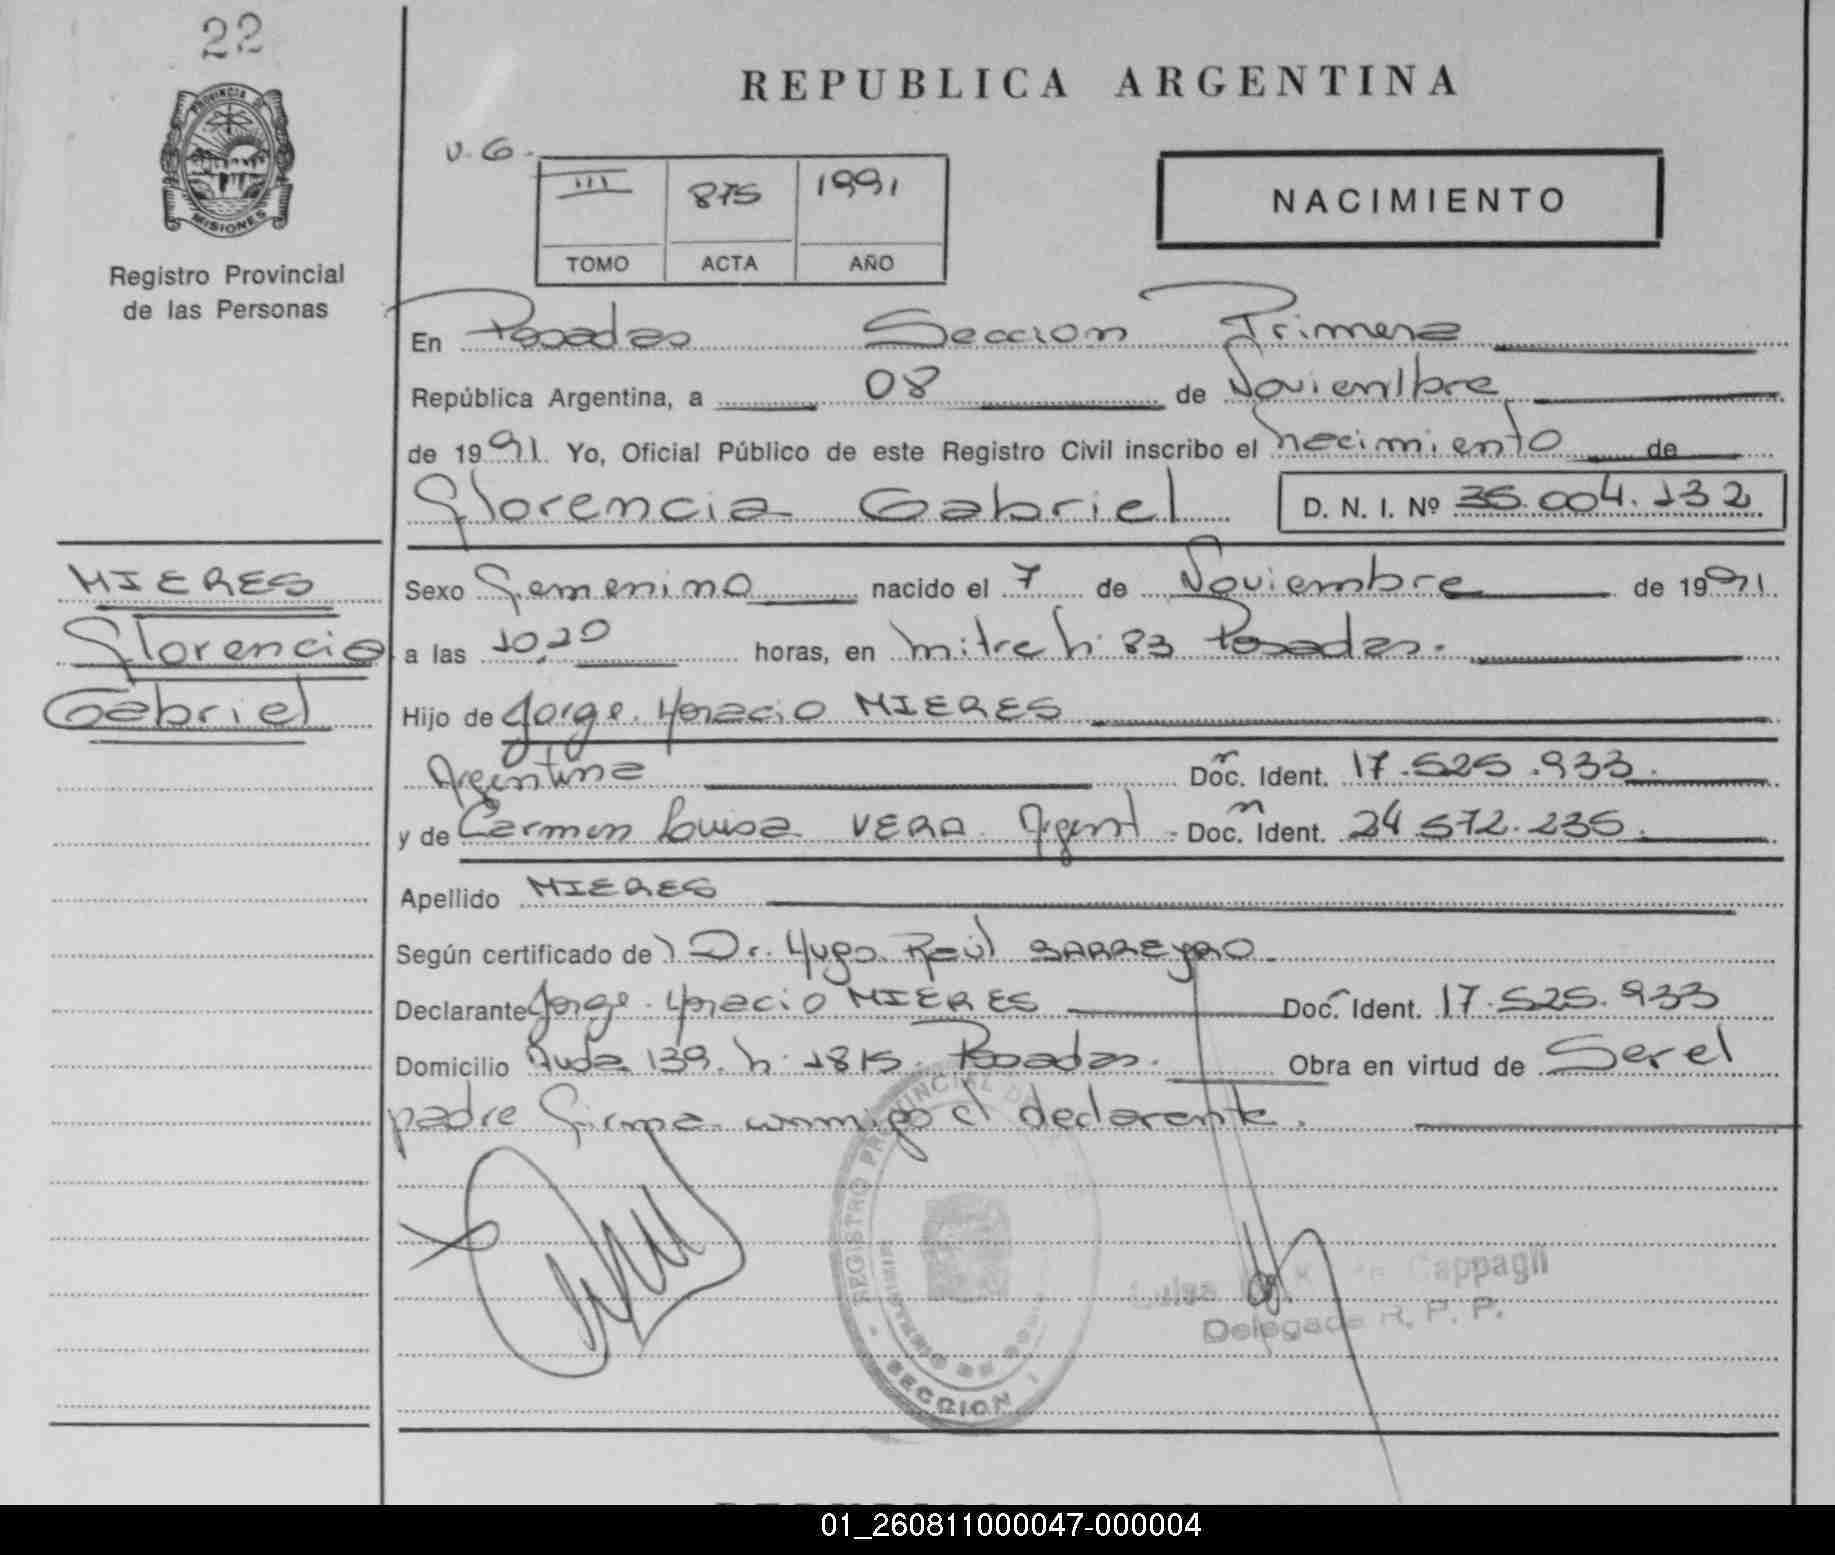 22
PROVINCIA DE
MISIONES
Registro Provincial
de las Personas
REPUBLICA ARGENTINA
U. G.
III 875 1991
TOMO ACTA AÑO
NACIMIENTO
En Posadas Seccion Primera
República Argentina, a 08 de Noviembre
de 1991. Yo, Oficial Público de este Registro Civil inscribo el nacimiento de
Florencia Gabriel D. N. I. Nº 36.004.132
MIERES
Florencia
Gabriel
Sexo Femenino nacido el 7 de Noviembre de 1991.
a las 10,20 horas, en Mitre h: 83 Posadas.
Hijo de Jorge Horacio MIERES
Argentina Doc. Ident. 17.525.933.
y de Carmen Luisa VERA Argent. Doc. Ident. 24.572.235.
Apellido MIERES
Según certificado de Dr. Hugo Raúl BARREYRO.
Declarante Jorge Horacio MIERES Doc. Ident. 17.525.933
Domicilio Avda 139. h: 1815. Posadas. Obra en virtud de Ser el
padre firma conmigo el declarante.
REGISTRO PROVINCIAL DE
MINISTERIO DE
SECCION 1
Luisa Cappagli
Delegada R. P. P.
01_260811000047-000004